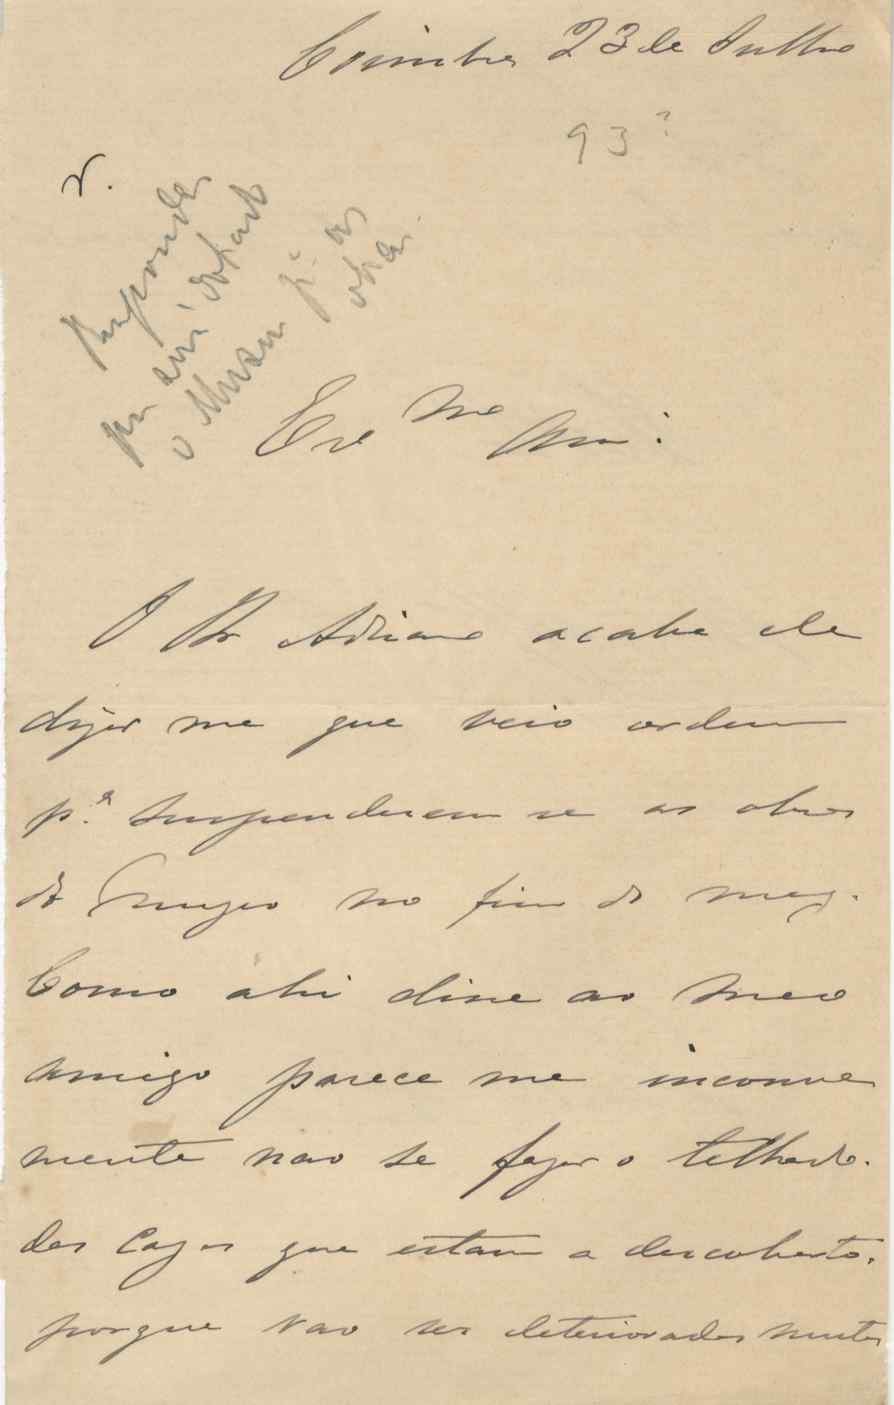 Coimbra 23 de Julho
93?
r.
Responder
que será dotado
o Museu p.ª as
obras.
Exmo Am.º:
O Dr Adriano acaba de
dizer me que veio ordem
p.ª suspenderem se as obras
do Muzeo no fim do mez.
Como ahi disse ao meo
amigo parece me inconve
niente nao se fazer o telhado.
das cazas que estam a descoberto.
porque vao ser deterioradas muitas